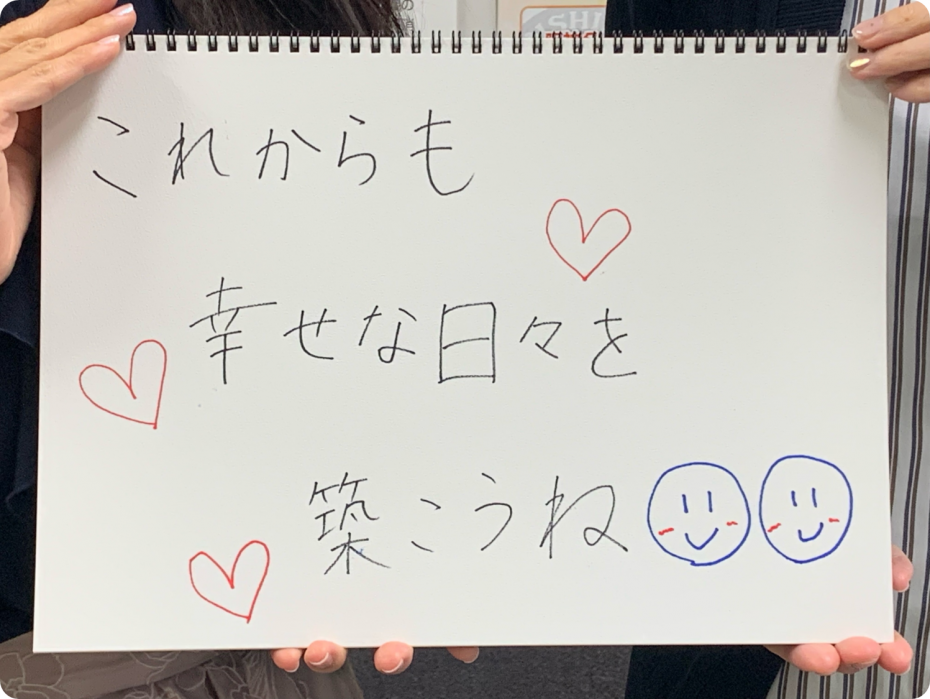 SHI
これからも
幸せな日々を
築こうね